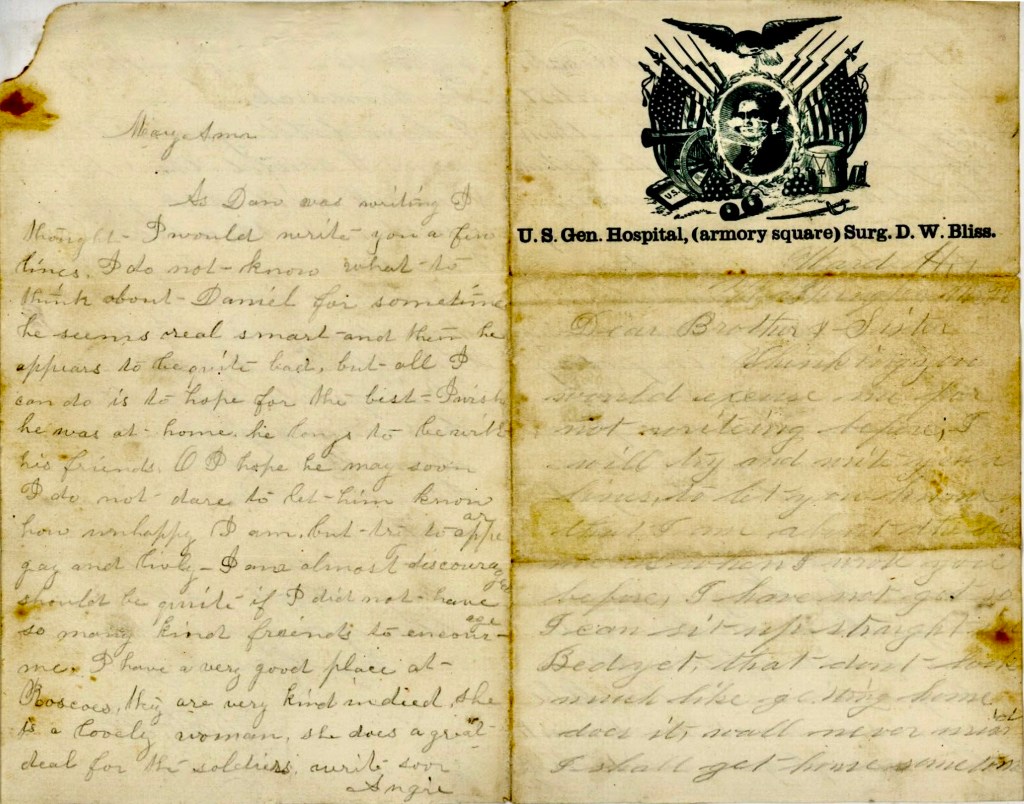 Mary Ann
As Dan was writing I
thought I would write you a few
lines. I do not know what to
think about Daniel for sometime
he seems real smart and then he
appears to be quite bad, but all I
can do is to hope for the best I wish
he was at home. he longs to be with
his friends. O I hope he may soon
I do not dare to let him know
how unhappy I am. but try to appear
gay and livly I am almost discouraged
should be quite if I did not have
so many kind freinds to encourage
me. I have a very good place at
Roscoes, they are very kind indeed, she
is a lovely woman, she does a great
deal for the soldiers. write soon
Angie
U.S.
U. S. Gen. Hospital, (armory square) Surg. D. W. Bliss.
Ward
Dear Brother & Sister
Thinking you
would excuse me for
not writiing before, I
will try and write you a
lines, to let you know
that I am about the
when I wrote you
before, I have not got so
I can sit up straight
Bed yet, that dont look
much like going home
does it, wall never mind
I shall get home sometime